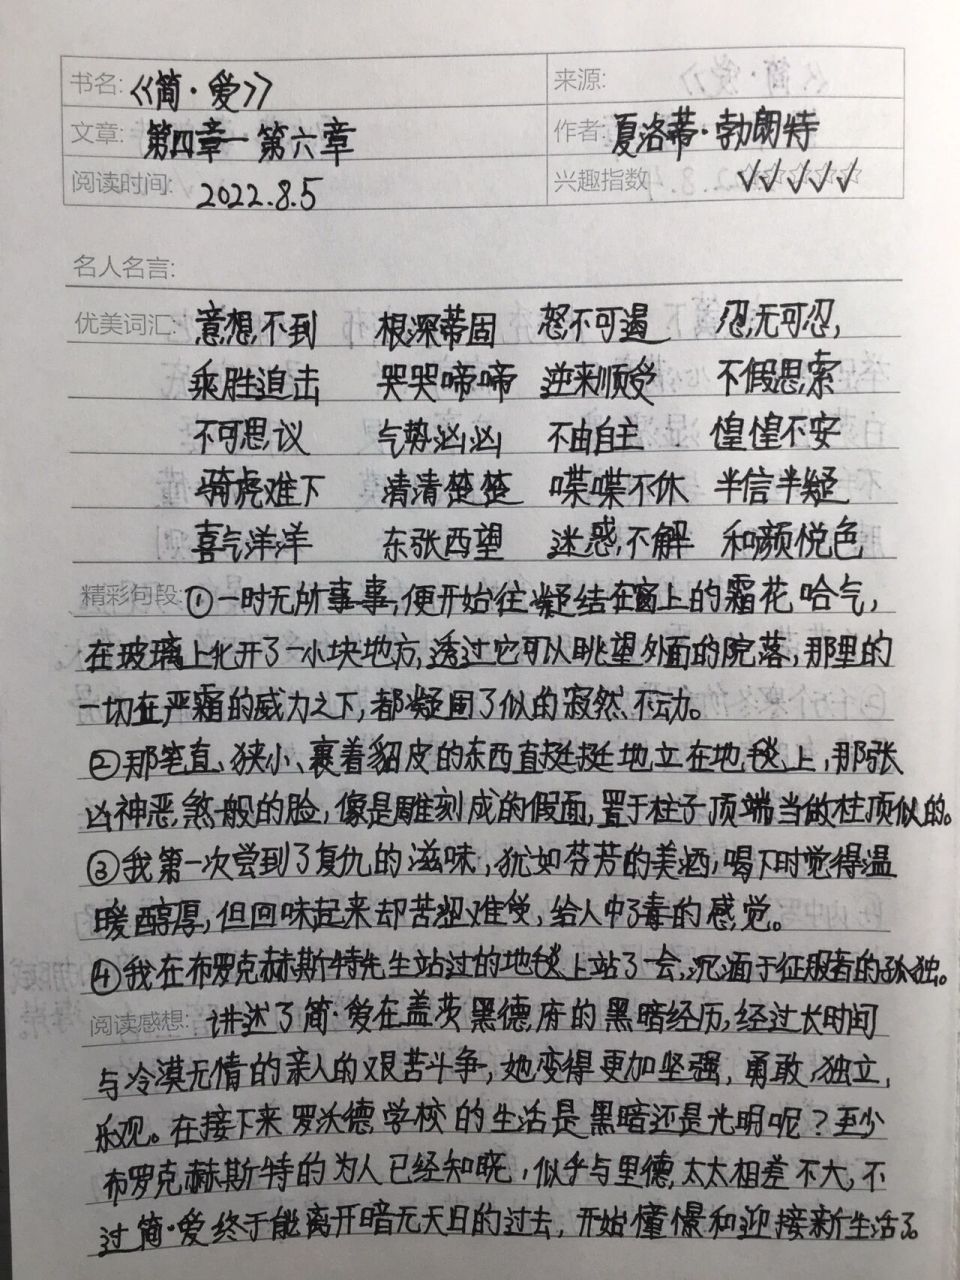 书名: 《简·爱》 来源:
文章: 第四章—第六章 作者: 夏洛蒂·勃朗特
阅读时间: 2022.8.5 兴趣指数 √√√√√
名人名言:
优美词汇: 意想不到 根深蒂固 怒不可遏 忍无可忍,
乘胜追击 哭哭啼啼 逆来顺受 不假思索
不可思议 气势汹汹 不由自主 惶惶不安
骑虎难下 清清楚楚 喋喋不休 半信半疑
喜气洋洋 东张西望 迷惑不解 和颜悦色
精彩句段: ①一时无所事事,便开始往凝结在窗上的霜花哈气,
在玻璃上化开了一小块地方,透过它可以眺望外面的院落,那里的
一切在严霜的威力之下,都凝固了似的寂然不动。
②那笔直、狭小、裹着貂皮的东西直挺挺地立在地毯上,那张
凶神恶煞一般的脸,像是雕刻成的假面,置于柱子顶端当做柱顶似的。
③我第一次尝到了复仇的滋味,犹如芬芳的美酒,喝下时觉得温
暖醇厚,但回味起来却苦涩难受,给人中了毒的感觉。
④我在布罗克赫斯特先生站过的地毯上站了一会,沉湎于征服者的孤独。
阅读感想: 讲述了简·爱在盖茨黑德府的黑暗经历,经过长时间
与冷漠无情的亲人的艰苦斗争,她变得更加坚强,勇敢,独立,
乐观。在接下来罗沃德学校的生活是黑暗还是光明呢?至少
布罗克赫斯特的为人已经知晓,似乎与里德太太相差不大,不
过简·爱终于能离开暗无天日的过去,开始憧憬和迎接新生活了。